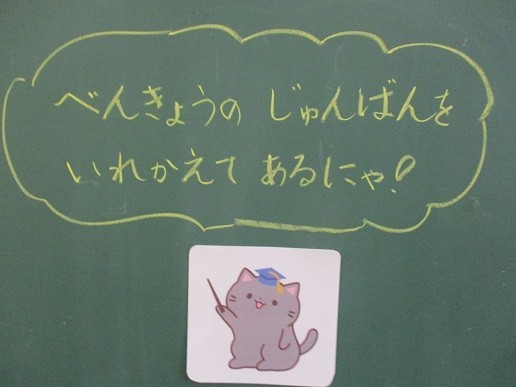 べんきょうの じゅんばんを
いれかえて あるにゃ!